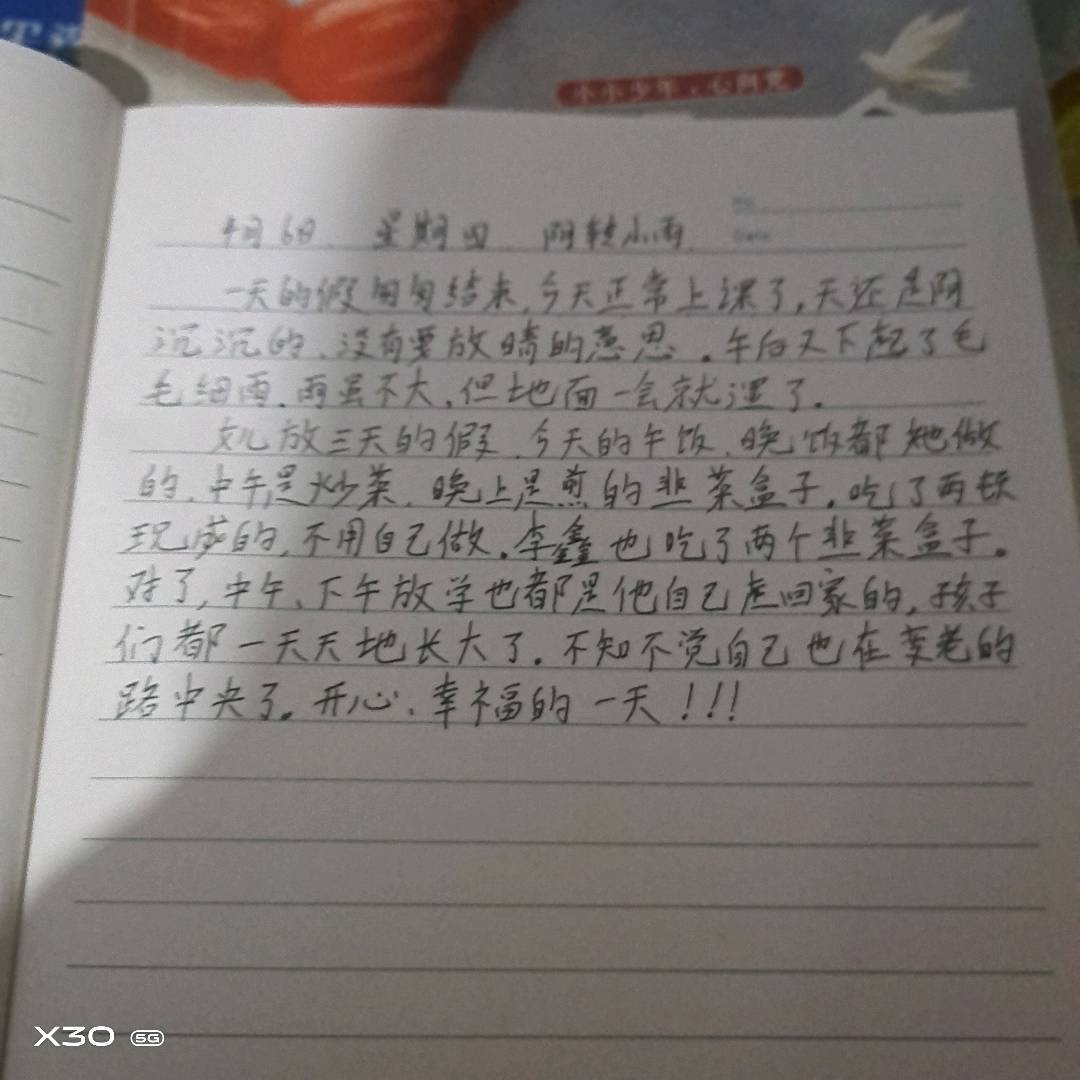 小小少年·心向党
No.
Date
4月6日 星期四 阴转小雨
一天的假匆匆结束,今天正常上课了,天还是阴
沉沉的,没有要放晴的意思。午后又下起了毛
毛细雨,雨虽不大,但地面一会就湿了。
女儿放三天的假,今天的午饭、晚饭都她做
的,中午是炒菜,晚上是煎的韭菜盒子。吃了两顿
现成的,不用自己做。李鑫也吃了两个韭菜盒子。
对了,中午、下午放学也都是他自己走回家的,孩子
们都一天天地长大了。不知不觉自己也在变老的
路中央了。开心、幸福的一天!!!
X30 5G